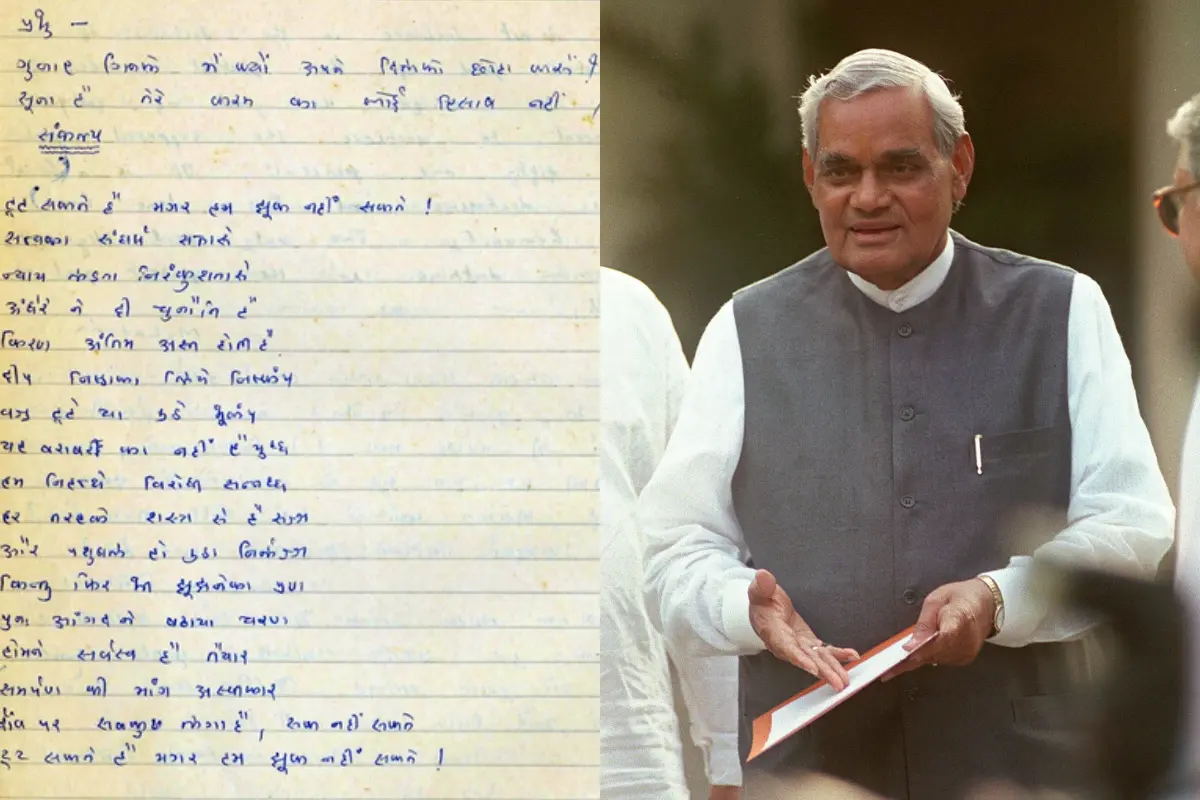 પ્રભુ –
ગુનાહ ગિનકે મેં ક્યોં અપને દિલકો છોટા કરું ?
સૂના હૈ તેરે કરમ કા કોઈ હિસાબ નહીં !
સંકલ્પ
ટૂટ સકતે હૈં મગર હમ ઝૂક નહીં સકતે !
સત્યકા સંઘર્ષ સત્તાસે
ન્યાય લડતા નિરંકુશતાસે
અંધેરે ને દી ચુનૌતિ હૈ
કિરણ અંતિમ અસ્ત હોતી હૈ
દીપ નિષ્ઠાકા લિયે નિષ્કંપ
વજ્ર ટૂટે યા ઉઠે ભૂકંપ
યહ બરાબરી કા નહીં હૈ યુધ્ધ
હમ નિહત્થે વિરોધી સન્નધ્ધ
હર તરહકે શસ્ત્ર સે હૈ સજ્જ
ઔર પશુબલ હો ઉઠા નિર્લજ્જ
કિન્તુ ફિર ભી ઝૂઝનેકા પ્રણ
પુનઃ અંગદ ને બઢાયા ચરણ
હોમને સર્વસ્વ હૈ તૈયાર
સમર્પણ કી માંગ અસ્વીકાર
દાંવ પર સબકુછ લગા હૈ, નહીં સકતે
ટૂટ સકતે હૈં મગર હમ ઝૂક નહીં સકતે !